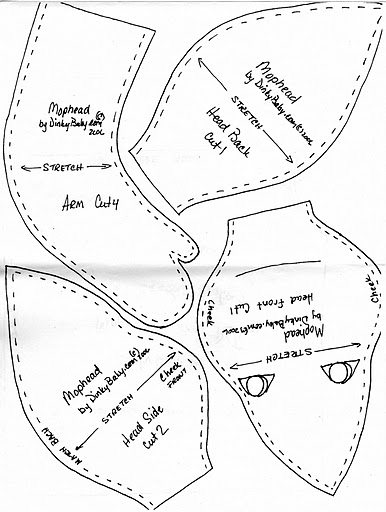 Mophead ©
by DinkyBaby.com
STRETCH
ARM Cut 4
Mophead
by DinkyBaby.com
STRETCH
Head Back
Cut 1
Cheek
Cheek
Head Front Cut 1
by DinkyBaby.com
Mophead
STRETCH
Mophead
by DinkyBaby.com (c)
STRETCH
Cheek
FRONT
Head Side
Cut 2
MATCH BACK